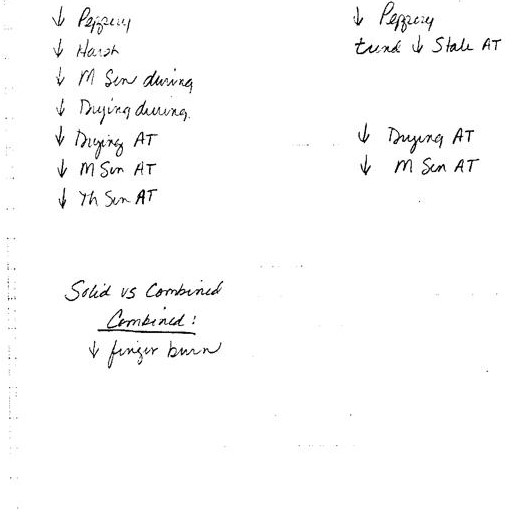 ↓ Peppery
↓ Harsh
↓ M Sen during
↓ Drying during.
↓ Drying AT
↓ M Sen AT
↓ Th Sen AT
↓ Peppery
trend ↓ Stale AT
↓ Drying AT
↓ M Sen AT
Solid vs Combined
Combined:
↓ finger burn